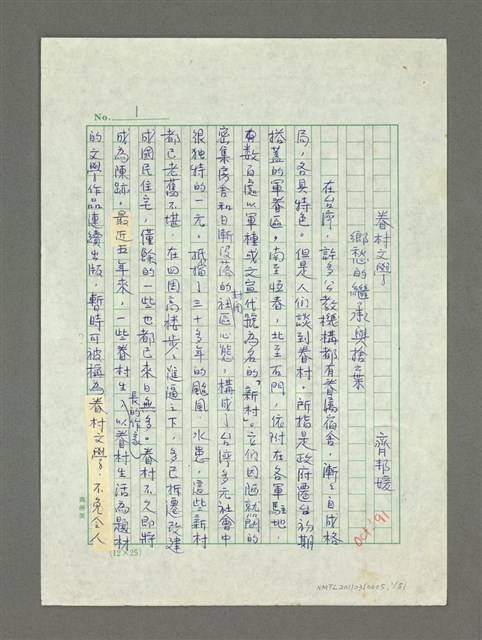 No. 1
眷村文學
鄉愁的繼承與捨棄
齊邦媛
Oct '91
在台灣,許多公教機構都有眷屬宿舍,漸漸自成格
局,各具特色。但是人們談到眷村,所指是政府遷台初期
搭蓋的軍眷區,南至恆春,北至石門,依附在各軍駐地,
有數百處以軍種或文宣代號為名的「新村」。它们因陋就簡的
密集房舍和日漸沒落的封閉社區心態,構成了台灣多元社會中
很獨特的一元。抵擋了三十多年的颱風、水患,這些新村
都已老舊不堪,在四周高樓步步進逼之下,多已拆遷改建
成國民住宅,僅餘的一些也都已來日無多。眷村不久即將
成為陳跡,最近五年來,一些眷村生長的作家以眷村生活為題材
的文學作品連續出版,暫時可被稱為眷村文學,不免令人
(12×25)
NMTL20110310005, 1/51